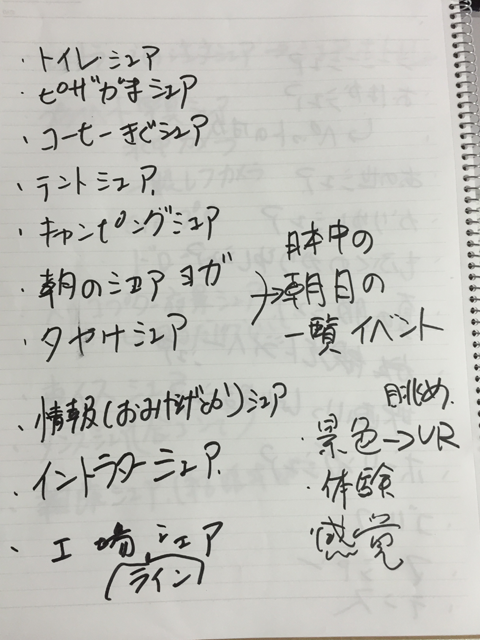 ・トイレシェア
・ピザがまシェア
・コーヒーきぐシェア
・テントシェア
・キャンピングシェア
・朝のシェア ヨガ
・夕やけシェア
日本中の
→朝日の
一覧イベント
・情報(おみやげとか)シェア
・イントラクターシェア
・工場シェア
(ライン)
眺め
・景色→VR
・体験
感覚